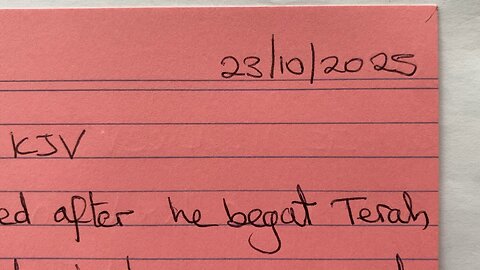 23/10/2025
KJV
ed after he begat Terah,